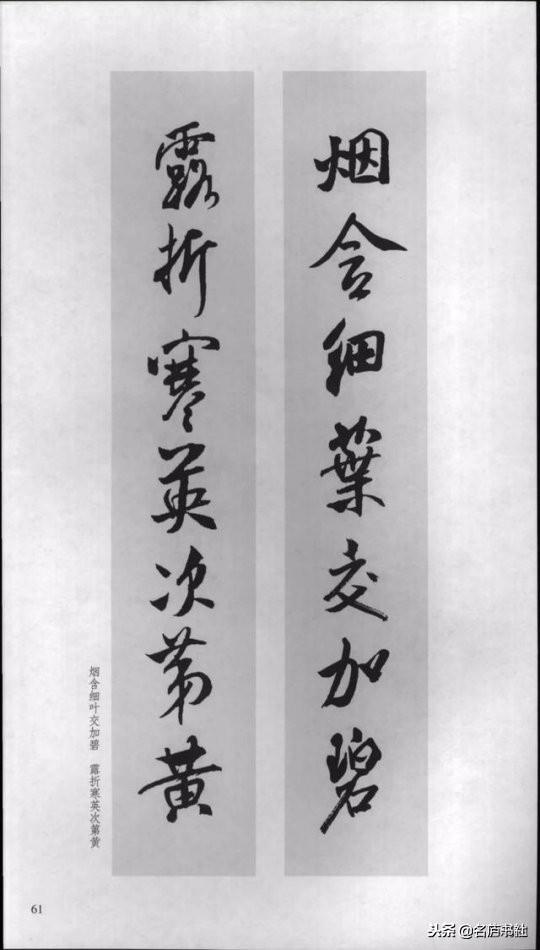 烟含细葉交加碧
露折寒英次第黄
烟含细叶交加碧 露折寒英次第黄
61
头条@名庐书社